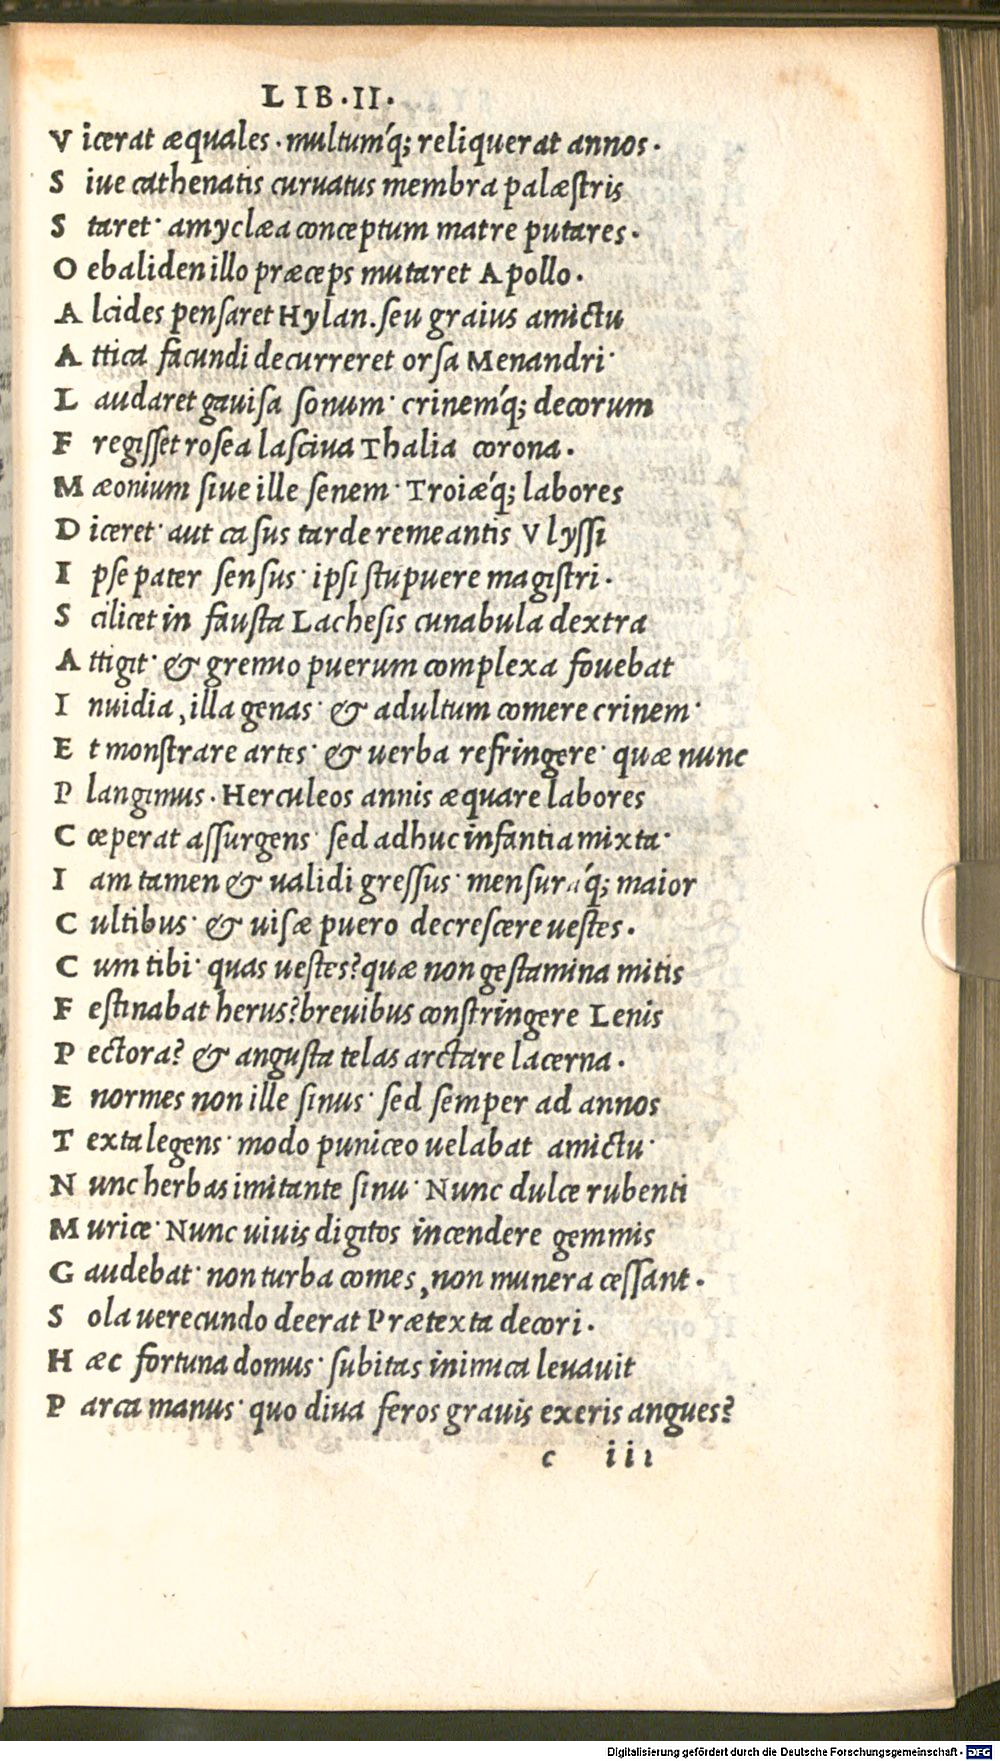 LIB.II.
V icerat æquales. multum´q; reliquerat annos.
S iue cathenatis curuatus membra palæstris
S taret· amyclæa conceptum matre putares.
O ebaliden illo præceps mutaret Apollo.
A lcides pensaret Hylan. seu graius amictu
A ttica facundi decurreret orsa Menandri·
L audaret gauisa sonum· crinem´q; decorum
F regisset rosea lasciua Thalia corona.
M æonium siue ille senem· Troiæ´q; labores
D iceret· aut casus tarde remeantis Vlyssi
I pse pater sensus· ipsi stupuere magistri.
S cilicet in fausta Lachesis cunabula dextra
A ttigit· & gremio puerum complexa fouebat
I nuidia, illa genas· & adultum comere crinem·
E t monstrare artes· & uerba refringere· quæ nunc
P langimus. Herculeos annis æquare labores
C œperat assurgens· sed adhuc infantia mixta·
I am tamen & ualidi gressus· mensura´q; maior
C ultibus· & uisæ puero decrescere uestes.
C um tibi· quas uestes? quæ non gestamina mitis
F estinabat herus? breuibus constringere Lenis
P ectora? & angusta telas arctare lacerna.
E normes non ille sinus· sed semper ad annos
T exta legens· modo puniceo uelabat amictu·
N unc herbas imitante sinu· Nunc dulce rubenti
M urice· Nunc uiuis digitos incendere gemmis
G audebat· non turba comes, non munera cessant.
S ola uerecundo deerat Prætexta decori.
H æc fortuna domus· subitas inimica leuauit
P arca manus· quo diua feros grauis exeris angues?
c iii
Digitalisierung gefördert durch die Deutsche Forschungsgemeinschaft - DFG